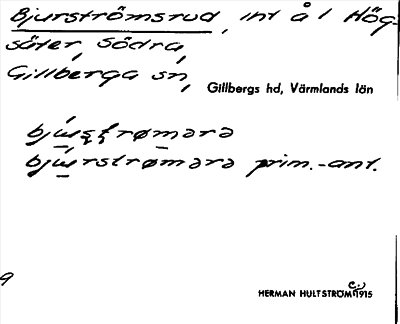 Bjurströmsrud, int å l Hög-
säter, Södra,
Gillberga sn,
Gillbergs hd, Värmlands län
bjúʂʈrømərə
bjúrstrømərə prim.-ant.
9
HERMAN HULTSTRÖM 1915